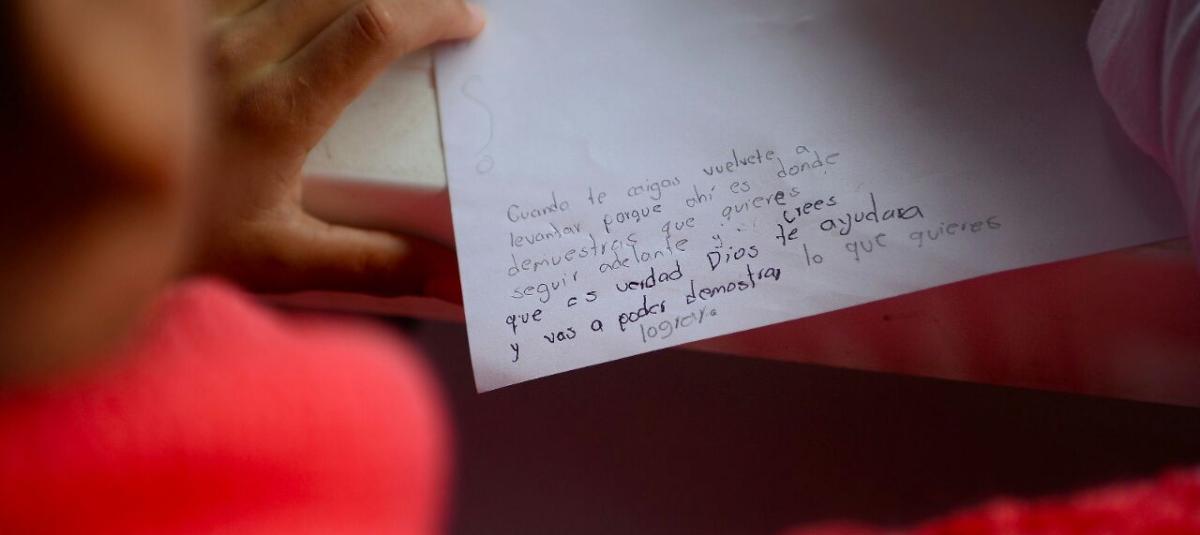 Cuando te caigas vuelvete a
levantar porque ahí es donde
demuestras que quieres
seguir adelante y crees
que es verdad Dios te ayudara
y vas a poder demostrar lo que quieres
lograr.